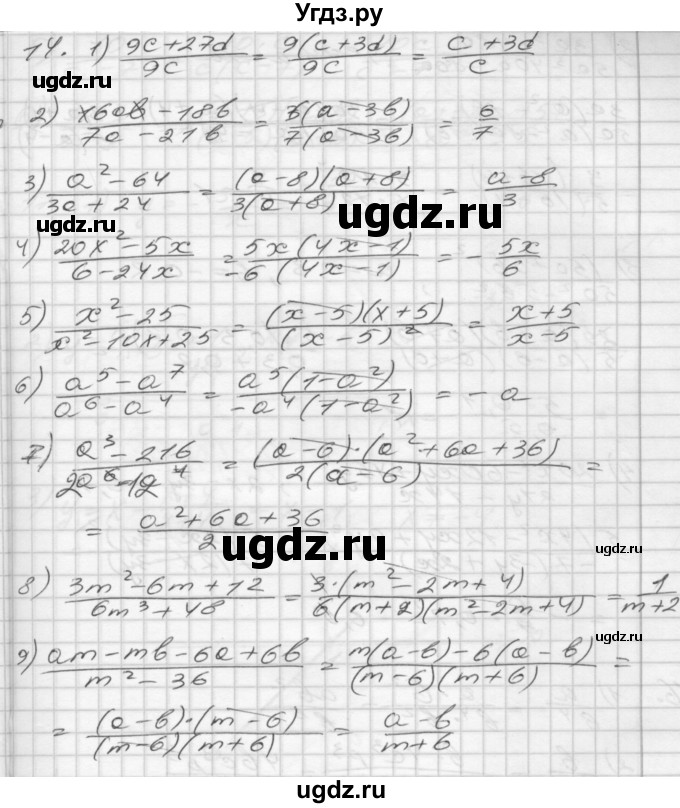 Угдз.ру
14. 1) (9c+27d)/(9c) = (9(c+3d))/(9c) = (c+3d)/c
ugdz.ru ugdz.ru
2) (6a - 18b)/(7a - 21b) = (6(a - 3b))/(7(a - 3b)) = 6/7
3) (a² - 64)/(3a + 24) = ((a-8)(a+8))/(3(a+8)) = (a-8)/3
ugdz.ru ugdz.ru
ugdz.ru
4) (20x² - 5x)/(6 - 24x) = (5x(4x-1))/(-6(4x-1)) = - 5x/6
5) (x² - 25)/(x² - 10x + 25) = ((x-5)(x+5))/((x-5)²) = (x+5)/(x-5)
ugdz.ru ugdz.ru
6) (a⁵ - a⁷)/(a⁶ - a⁴) = (a⁵(1-a²))/(-a⁴(1-a²)) = - a
7) (a³ - 216)/(2a - 12) = ((a-6)·(a²+6a+36))/(2(a-6)) =
ugdz.ru ugdz.ru
= (a²+6a+36)/2
ugdz.ru
8) (3m² - 6m + 12)/(6m³ + 48) = (3·(m² - 2m + 4))/(6(m+2)(m² - 2m + 4)) = 1/(m+2)
ugdz.ru ugdz.ru
9) (am - mb - 6a + 6b)/(m² - 36) = (m(a-b) - 6(a-b))/((m-6)(m+6)) =
= ((a-b)·(m-6))/((m-6)(m+6)) = (a-b)/(m+6)
ugdz.ru ugdz.ru
ugdz.ru